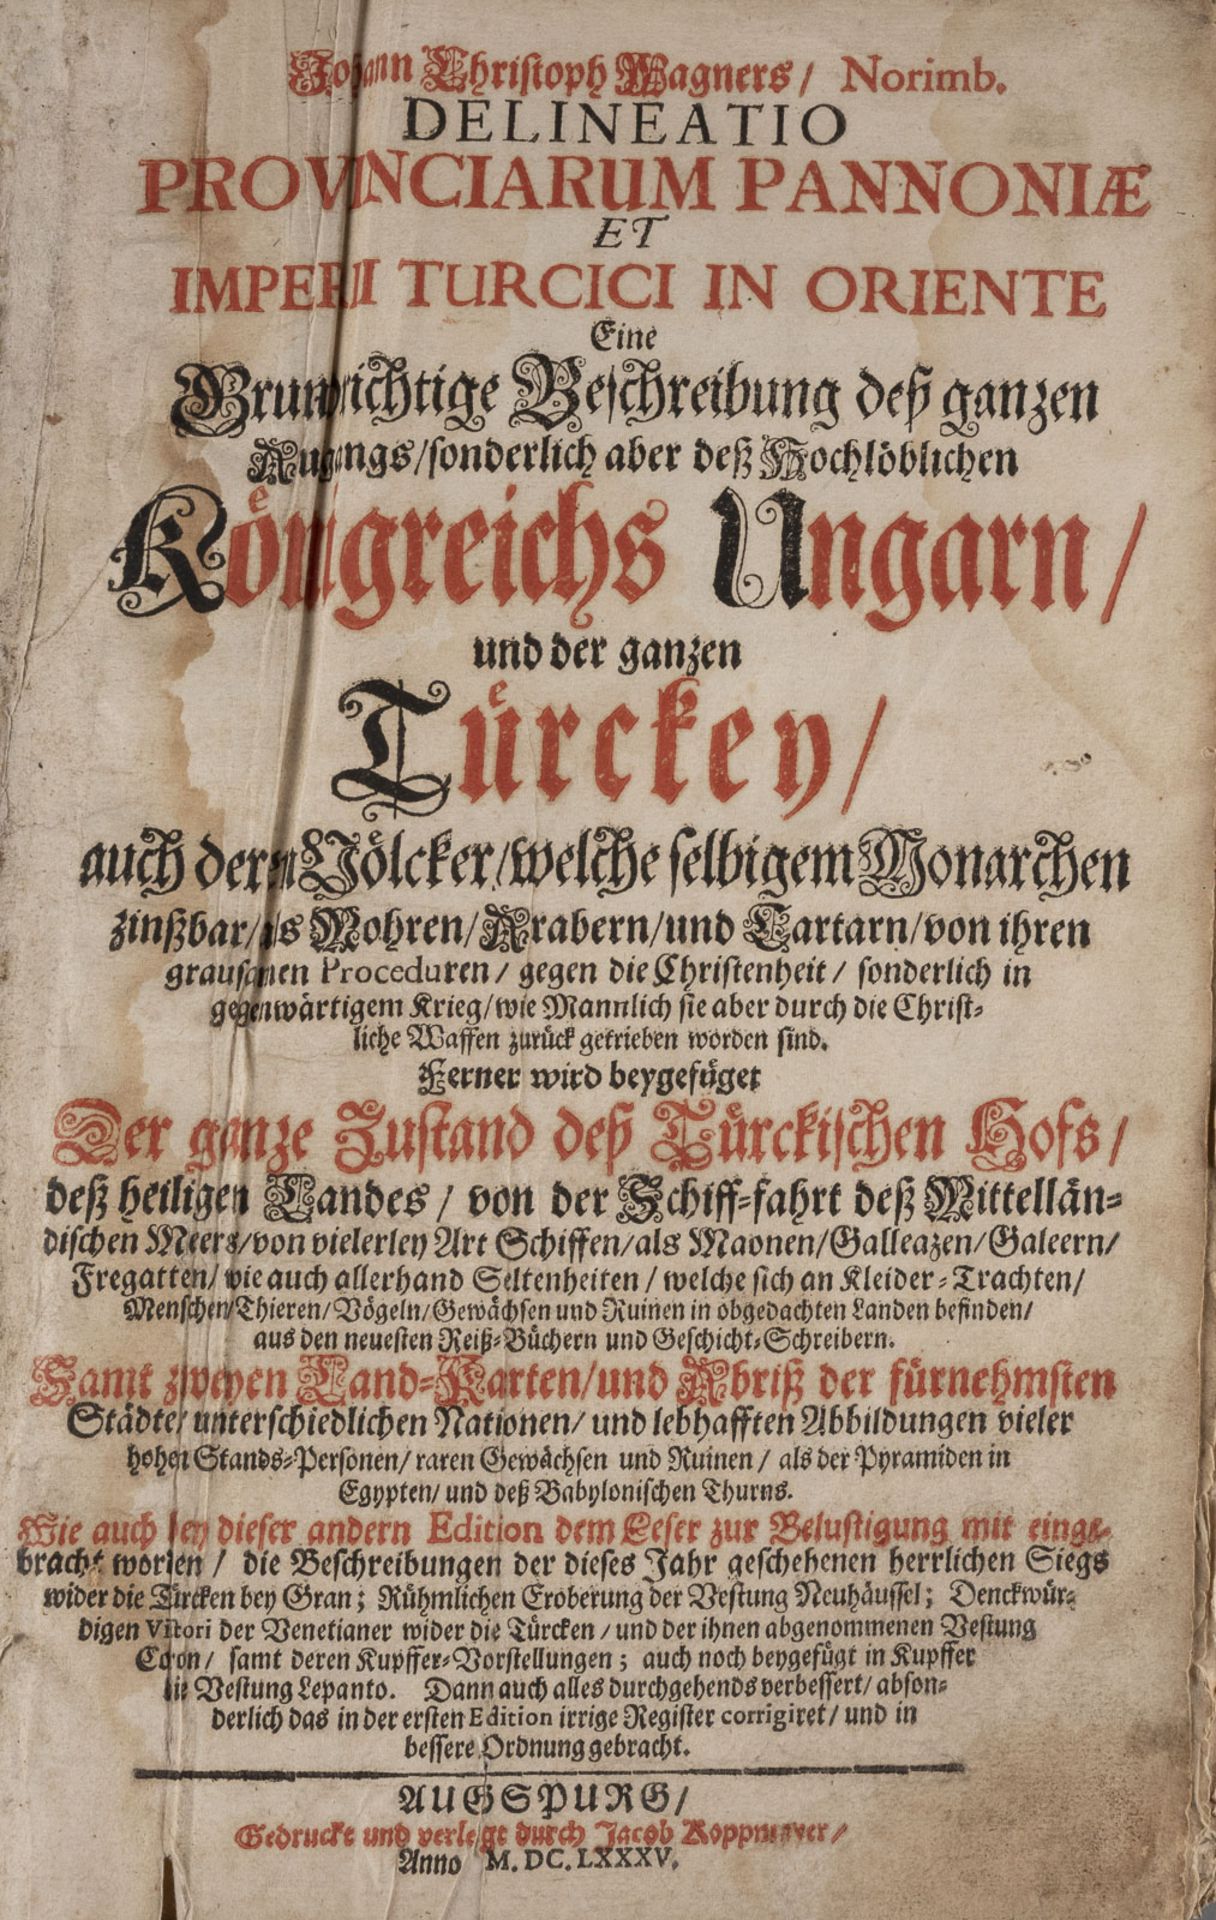 Johann Christoph Wagners/ Norimb.
DELINEATIO
PROVINCIARUM PANNONIÆ
ET
IMPERII TURCICI IN ORIENTE
Eine
Grundrichtige Beschreibung deß ganzen
Aufgangs/ sonderlich aber deß Hochlöblichen
Koͤnigreichs Ungarn/
und der ganzen
Tuͤrckey/
auch deren Voͤlcker/ welche selbigem Monarchen
zinßbar/ als Mohren/ Arabern/ und Tartarn/ von ihren
grausamen Proceduren/ gegen die Christenheit/ sonderlich in
gegenwärtigem Krieg/ wie Mannlich sie aber durch die Christ-
liche Waffen zurück getrieben worden sind.
Ferner wird beygefüget
Der ganze Zustand deß Tuͤrckischen Hofs/
deß heiligen Landes/ von der Schiff-fahrt deß Mittellän-
dischen Meers/ von vielerley Art Schiffen/ als Maonen/ Galleazen/ Galeern/
Fregatten/ wie auch allerhand Seltenheiten/ welche sich an Kleider-Trachten/
Menschen/ Thieren/ Vögeln/ Gewächsen und Ruinen in obgedachten Landen befinden/
aus den neuesten Reiß-Büchern und Geschicht-Schreibern.
Samt zweyen Land-Karten/ und Abriß der fürnehmsten
Städte/ unterschiedlichen Nationen/ und lebhafften Abbildungen vieler
hohen Stands-Personen/ raren Gewächsen und Ruinen/ als der Pyramiden in
Egypten/ und deß Babylonischen Thurns.
Wie auch bey dieser andern Edition dem Leser zur Belustigung mit einge-
bracht worden/ die Beschreibungen der dieses Jahr geschehenen herrlichen Siegs
wider die Türcken bey Gran; Rühmlichen Eroberung der Vestung Neuhäussel; Denckwür-
digen Vitori der Venetianer wider die Türcken/ und der ihnen abgenommenen Vestung
Coron/ samt deren Kupffer-Vorstellungen; auch noch beygefügt in Kupffer
die Vestung Lepanto. Dann auch alles durchgehends verbessert/ abson-
derlich das in der ersten Edition irrige Register corrigiret/ und in
bessere Ordnung gebracht.
AUGSPURG/
Gedruckt und verlegt durch Jacob Koppmayer/
Anno M. DC. LXXXV.